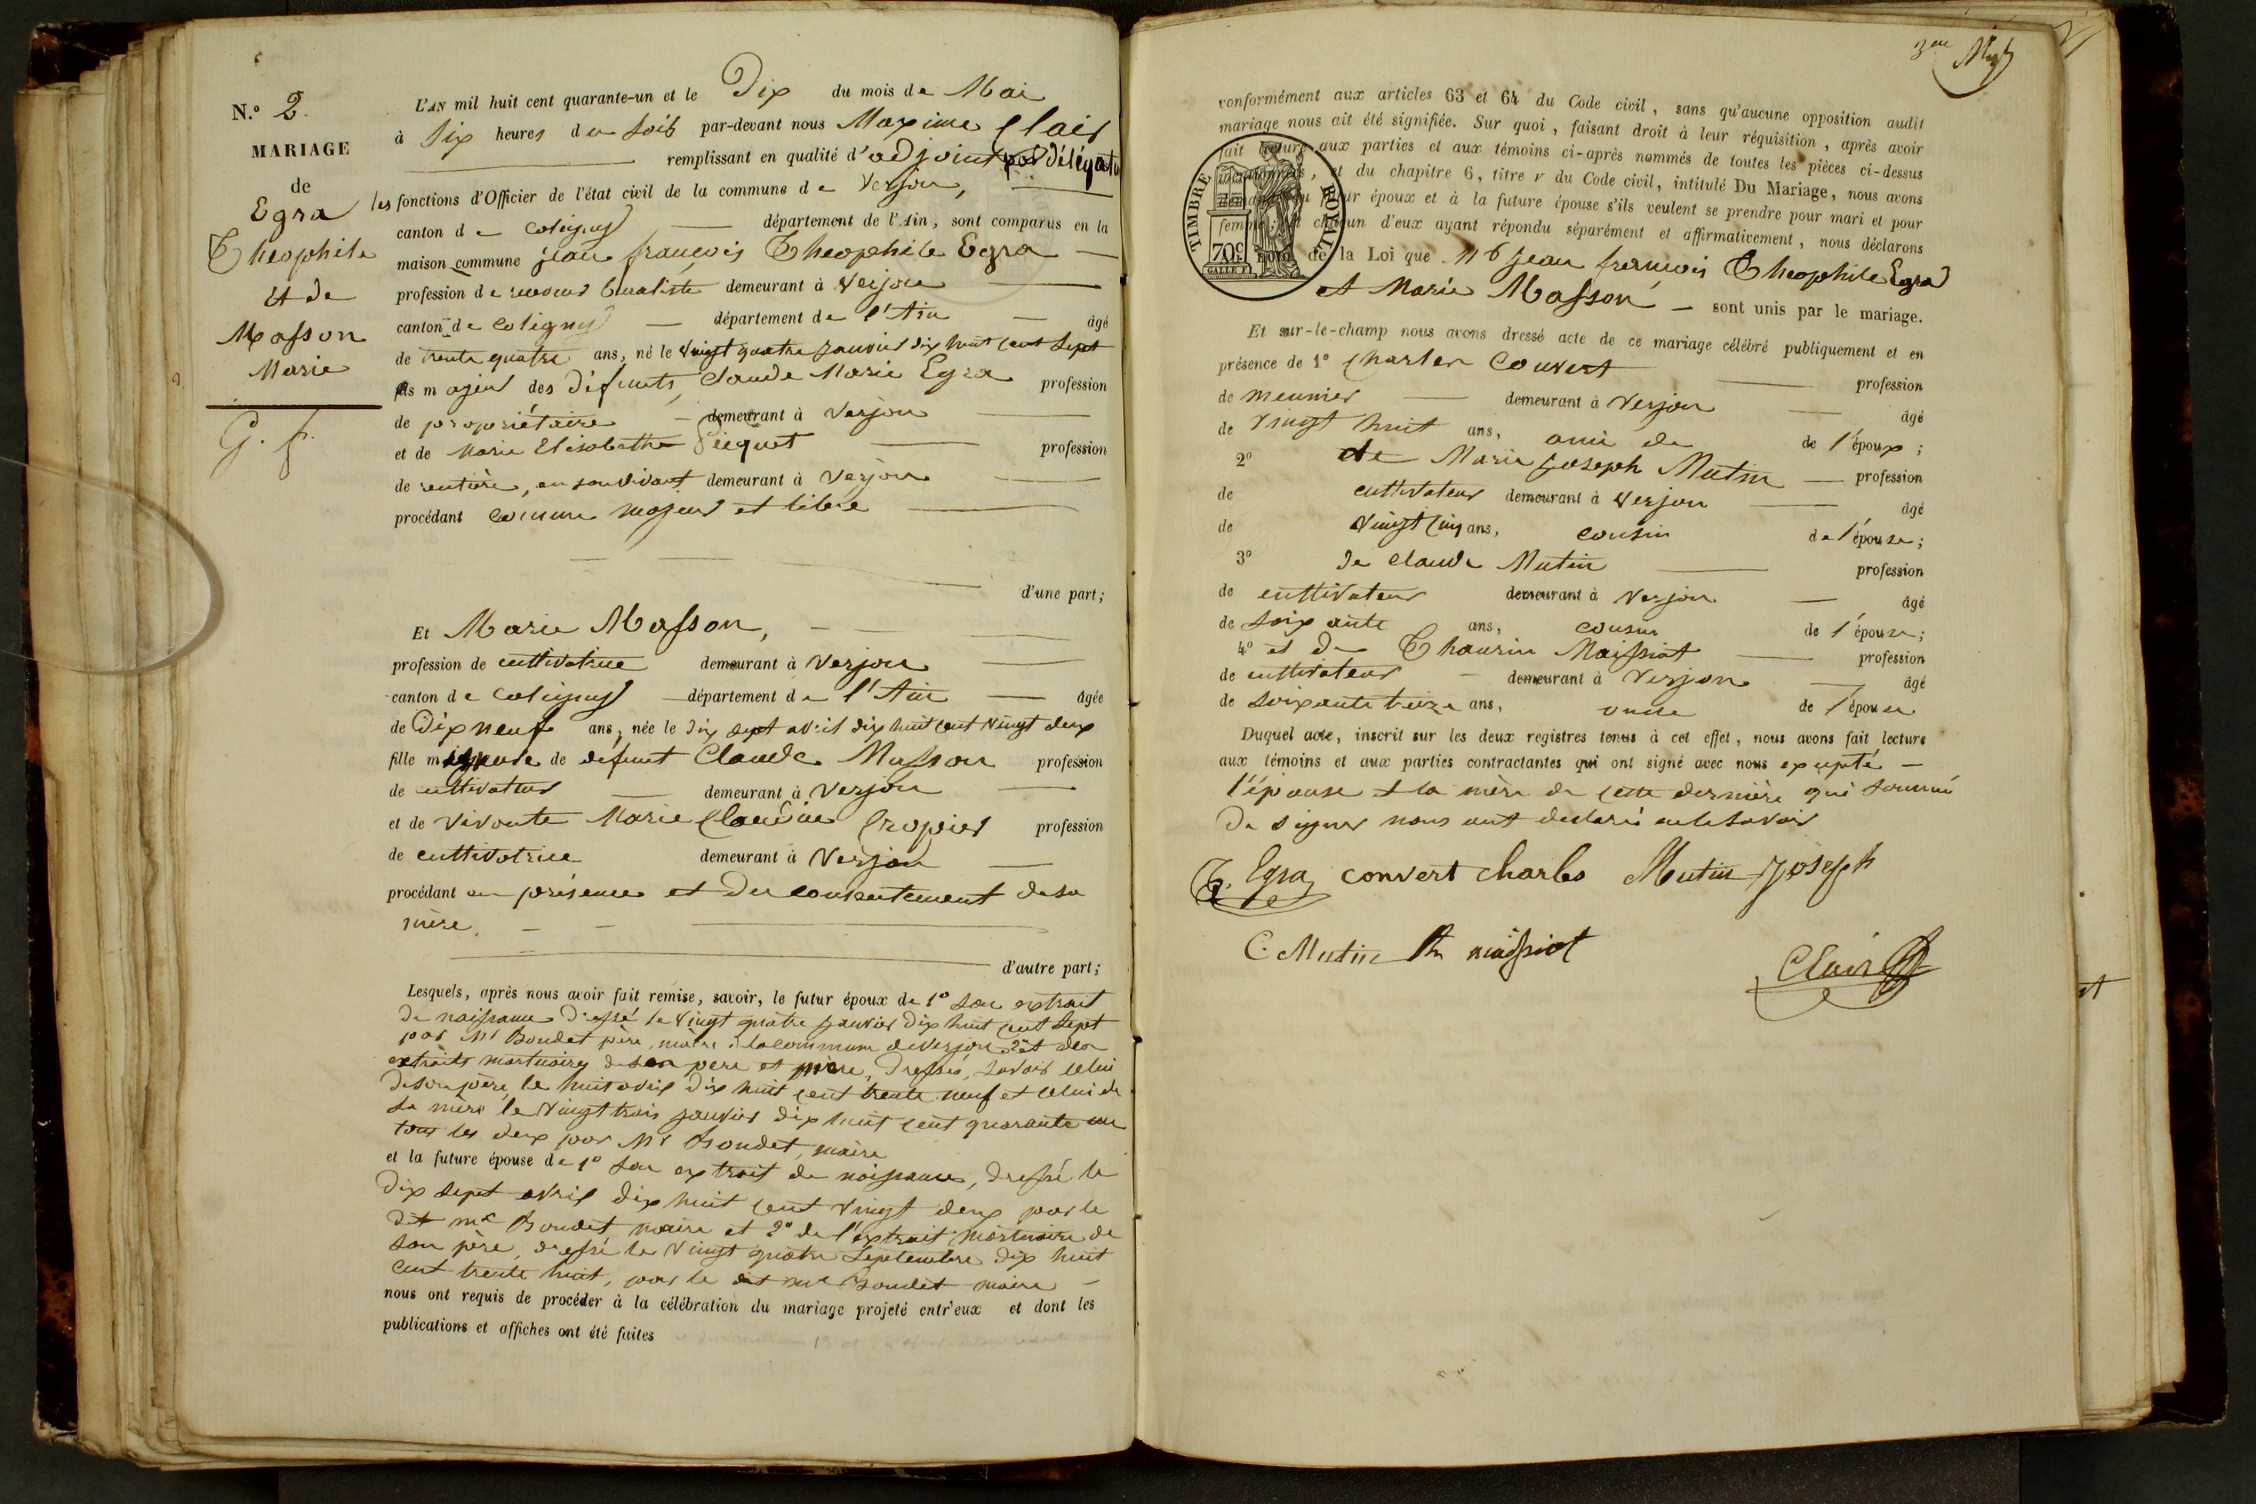 N.° 2.
MARIAGE
de
Egra
Theophile
et de
Masson
Marie
G. f.
L'AN mil huit cent quarante-un et le Dix du mois de Mai
à Six heures du soir par-devant nous Maxime Clair
remplissant en qualité d'adjoint par délégation
les fonctions d'Officier de l'état civil de la commune de Verjon,
canton de Coligny département de l'Ain, sont comparus en la
maison commune jean francois Theophile Egra
profession de receveur buraliste demeurant à Verjon
canton de Coligny département de l'Ain âgé
de trente quatre ans, né le vingt quatre janvier dix huit cent sept
fils majeur des défunts Claude Marie Egra profession
de propriétaire demeurant à Verjon
et de Marie Elisabethe profession
de rentière, en son vivant demeurant à Verjon
procédant comme majeur et libre
d'une part;
Et Marie Masson,
profession de cultivatrice demeurant à Verjon
canton de Coligny département de l'Ain âgée
de Dix neuf ans, née le dix sept avril dix huit cent vingt deux
fille mineure de défunt Claude Masson profession
de cultivateur demeurant à Verjon
et de vivante Marie Claudine Cropier profession
de cultivatrice demeurant à Verjon
procédant en présence et du consentement de sa
mère.
d'autre part;
Lesquels, après nous avoir fait remise, savoir, le futur époux de 1° son extrait
de naissance dressé le vingt quatre janvier dix huit cent sept
par Mr Boudet père, maire de la commune de Verjon 2° et des
extraits mortuaires de son pere et mère, dressés, savoir celui
de son père, le huit avril dix huit cent trente neuf et celui de
sa mère le vingt trois janvier dix huit cent quarante un
tous les deux par Mr Boudet, maire
et la future épouse de 1° son extrait de naissance, dressé le
dix sept avril dix huit cent vingt deux par le
dit mr Boudet maire et 2° de l'extrait mortuaire de
son père, dressé le vingt quatre septembre dix huit
cent trente huit, par le dit mr Boudet maire
nous ont requis de procéder à la célébration du mariage projeté entr'eux et dont les
publications et affiches ont été faites
3me
conformément aux articles 63 et 64 du Code civil, sans qu'aucune opposition audit
mariage nous ait été signifiée. Sur quoi, faisant droit à leur réquisition, après avoir
fait lecture aux parties et aux témoins ci-après nommés de toutes les pièces ci-dessus
mentionnées, et du chapitre 6, titre V du Code civil, intitulé Du Mariage, nous avons
demandé au futur époux et à la future épouse s'ils veulent se prendre pour mari et pour
femme: et chacun d'eux ayant répondu séparément et affirmativement, nous déclarons
au nom de la Loi que Mr Jean francois Theophile Egra
et Marie Masson sont unis par le mariage.
TIMBRE ROYAL
70c
Et sur-le-champ nous avons dressé acte de ce mariage célébré publiquement et en
présence de 1° Charles Convert profession
de meunier demeurant à Verjon âgé
de vingt huit ans, ami de de l'époux;
2° de Marie Joseph Mutin profession
de cultivateur demeurant à Verjon âgé
de vingt cinq ans, cousin de l'épouse;
3° de Claude Mutin profession
de cultivateur demeurant à Verjon âgé
de soixante ans, cousin de l'épouse;
4° et de Thaurin Maissiat profession
de cultivateur demeurant à Verjon âgé
de soixante treize ans, oncle de l'épouse
Duquel acte, inscrit sur les deux registres tenus à cet effet, nous avons fait lecture
aux témoins et aux parties contractantes qui ont signé avec nous excepté
l'épouse et la mère de cette dernière qui sommé
de signer nous ont déclaré ne le savoir
T. Egra convert charles Mutin Joseph
C. Mutin Th maissiat
Clair